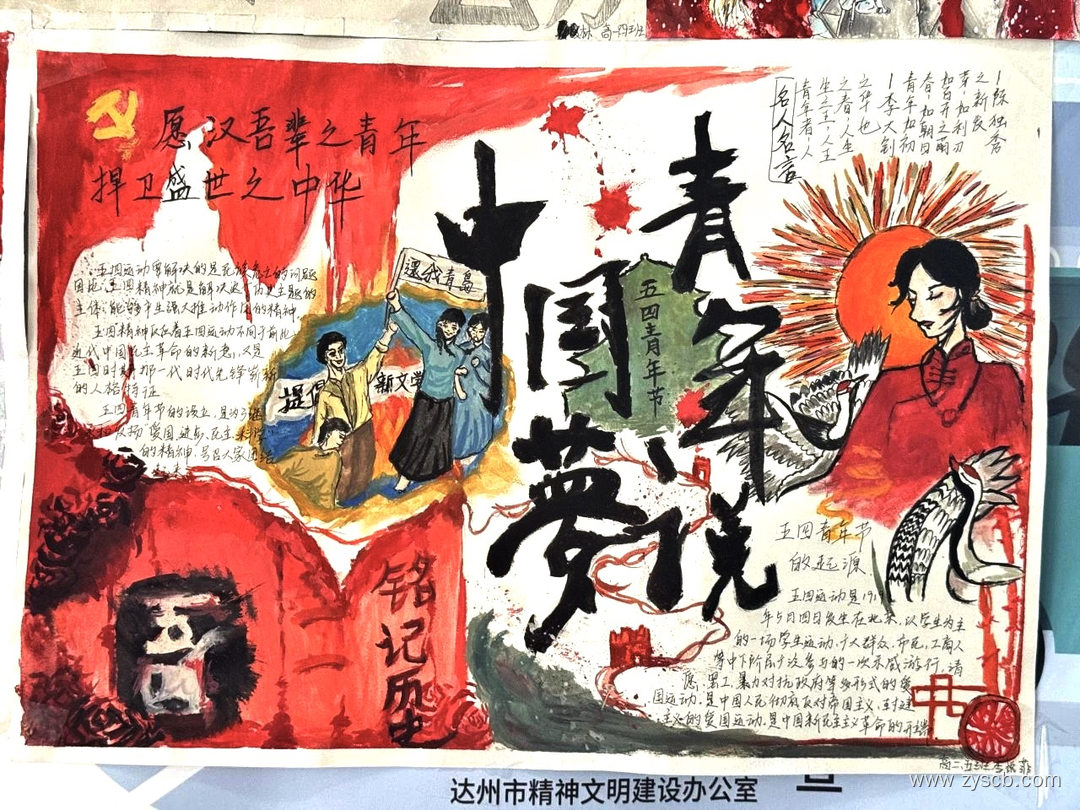 高一四班
愿汉吾辈之青年
捍卫盛世之中华
五四运动要解决的是民族危亡的问题
因此，五四精神就是解决这一历史主题的
主体，能够产生强大推动作用的精神
五四精神
五四运动不同于前此
近代中国民主革命的新意，又是
五四时期那一代时代先锋崭新
的人格特征
五四青年节的设立，是为了
发扬"爱国、进步、民主、科学
的精神，号召大家
還我青島
提倡
新文学
中国梦
青年说
五四青年节
名人名言
青年者，人
生之王，人生
之春，人生
之华也
-李大钊
青年如初
春，如朝日
如百卉之萌
芽，如利刃
之新发
-陈独秀
五四
铭记历史
五四青年节
的起源
五四运动是191
年5月四日发生在北京，以学生为主
的一场学生运动，广大群众、市民、工商人
等中下阶层广泛参与的一次示威游行、请
愿、罢工、暴力对抗政府等多形式的爱
国运动，是中国人民彻底反对帝国主义、封建
主义的爱国运动，是中国新民主主义革命的开端
高二五班
www.zyscb.com
达州市精神文明建设办公室
宣